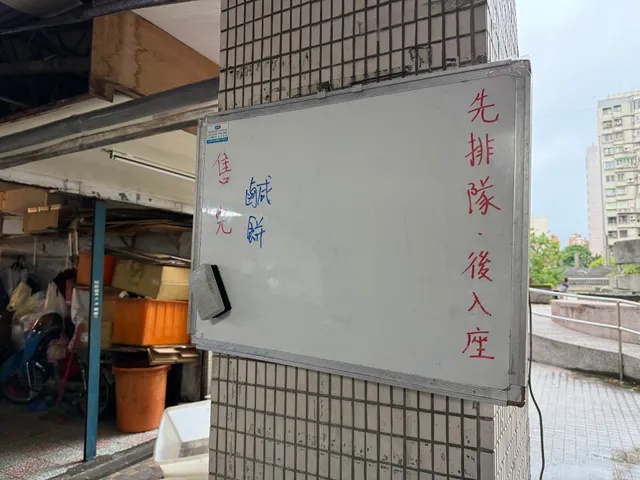 先排隊．後入座
鹹餅
售完